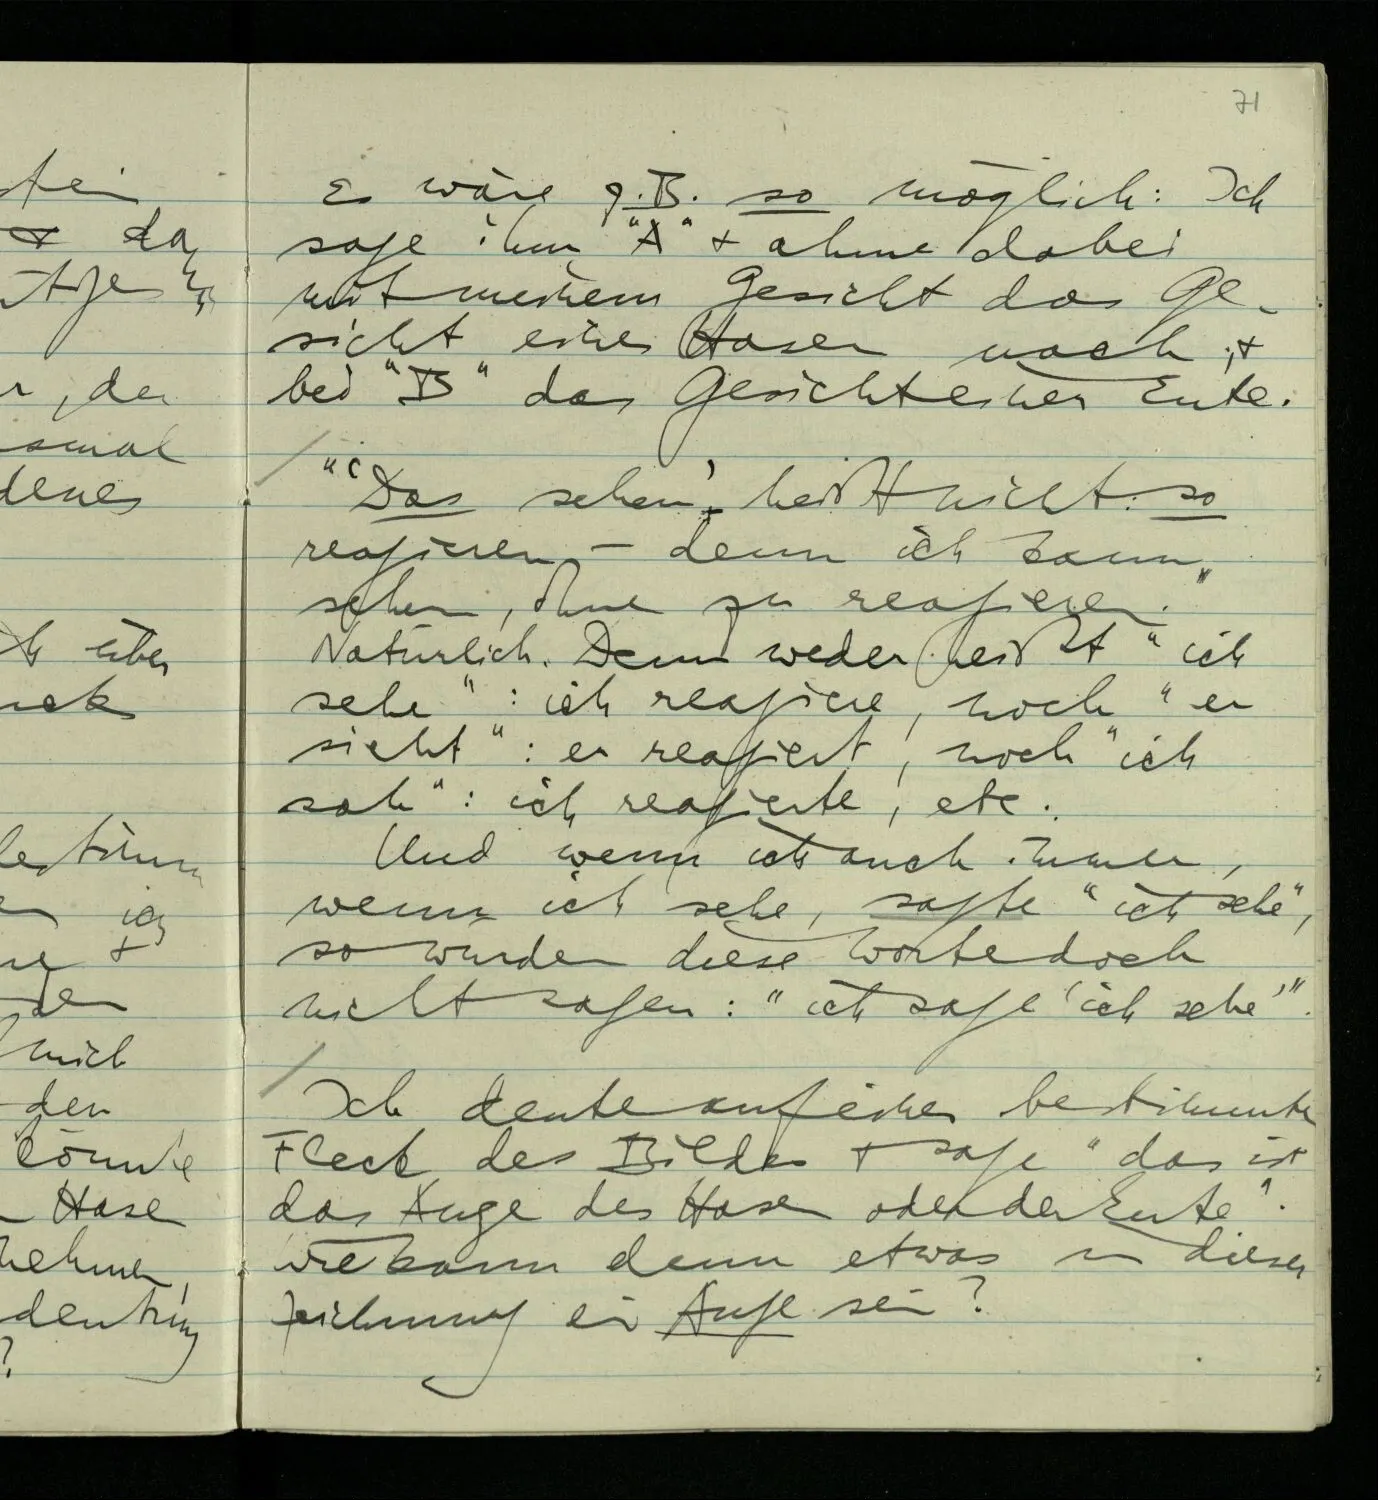 71
tein
+ da
r, der
esmal
denes
über
uck
ich
+
den
mich
den
könnte
Hase
nehmen,
deutung
?
Es wäre z.B. so möglich: Ich
sage ihm "A" + ahme dabei
mit meinem Gesicht das Ge-
sicht eines Hasen nach, +
bei "B" das Gesicht einer Ente.
"'Das sehen', heißt nicht: so
reagieren, – denn ich kann
sehen, ohne zu reagieren."
Natürlich. Denn weder heißt "ich
sehe": ich reagiere, noch "er
sieht": er reagiert, noch "ich
sah": ich reagierte, etc.
Und wenn ich auch immer,
wenn ich sehe, sagte "ich sehe",
so würden diese Worte doch
nicht sagen: "ich sage 'ich sehe'".
Ich deute auf einen bestimmten
Fleck des Bildes + sage "das ist
das Auge des Hasen oder der Ente".
Wie kann denn etwas in dieser
Zeichnung ein Auge sein?